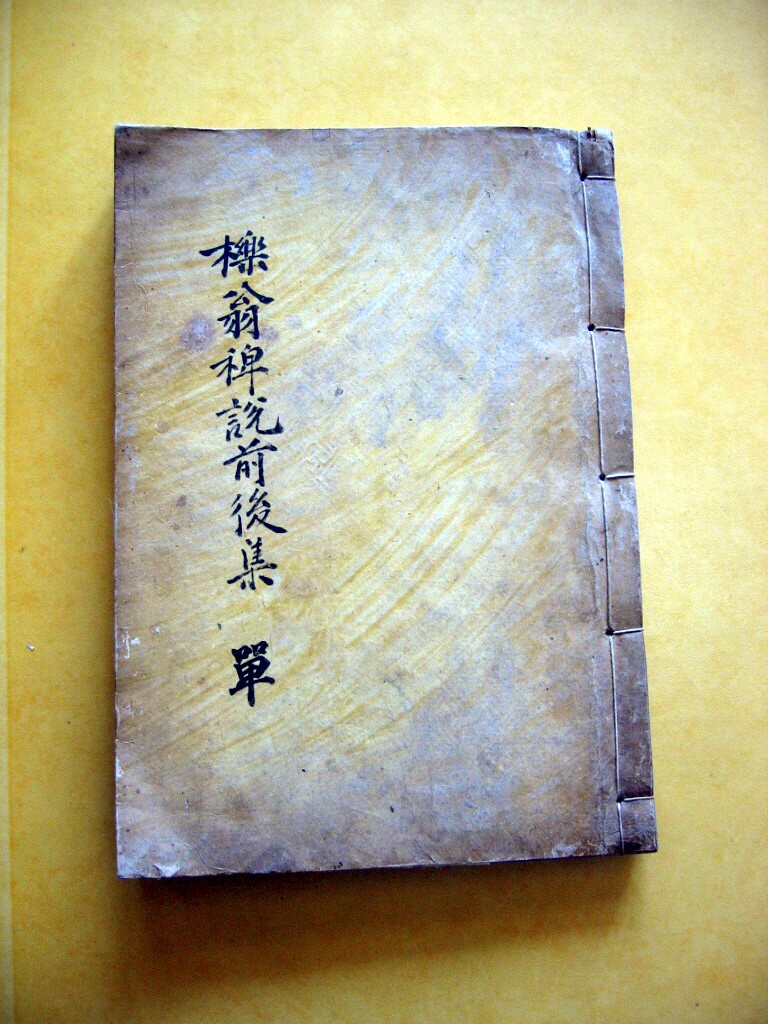 櫟翁稗說前後集 單